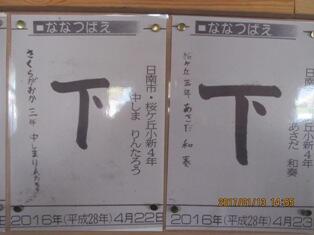 ■ななつばえ
下
日南市・桜ケ丘小新4年
中しま りんたろう
さくらがおか 三年 中しまりんたろう
2016年(平成28年)4月22日
■ななつばえ
下
丘小新4年
あさだ 和奏
桜ケ丘三年 あさだ 和奏
2016年(平成28年)4月23
2017/01/13